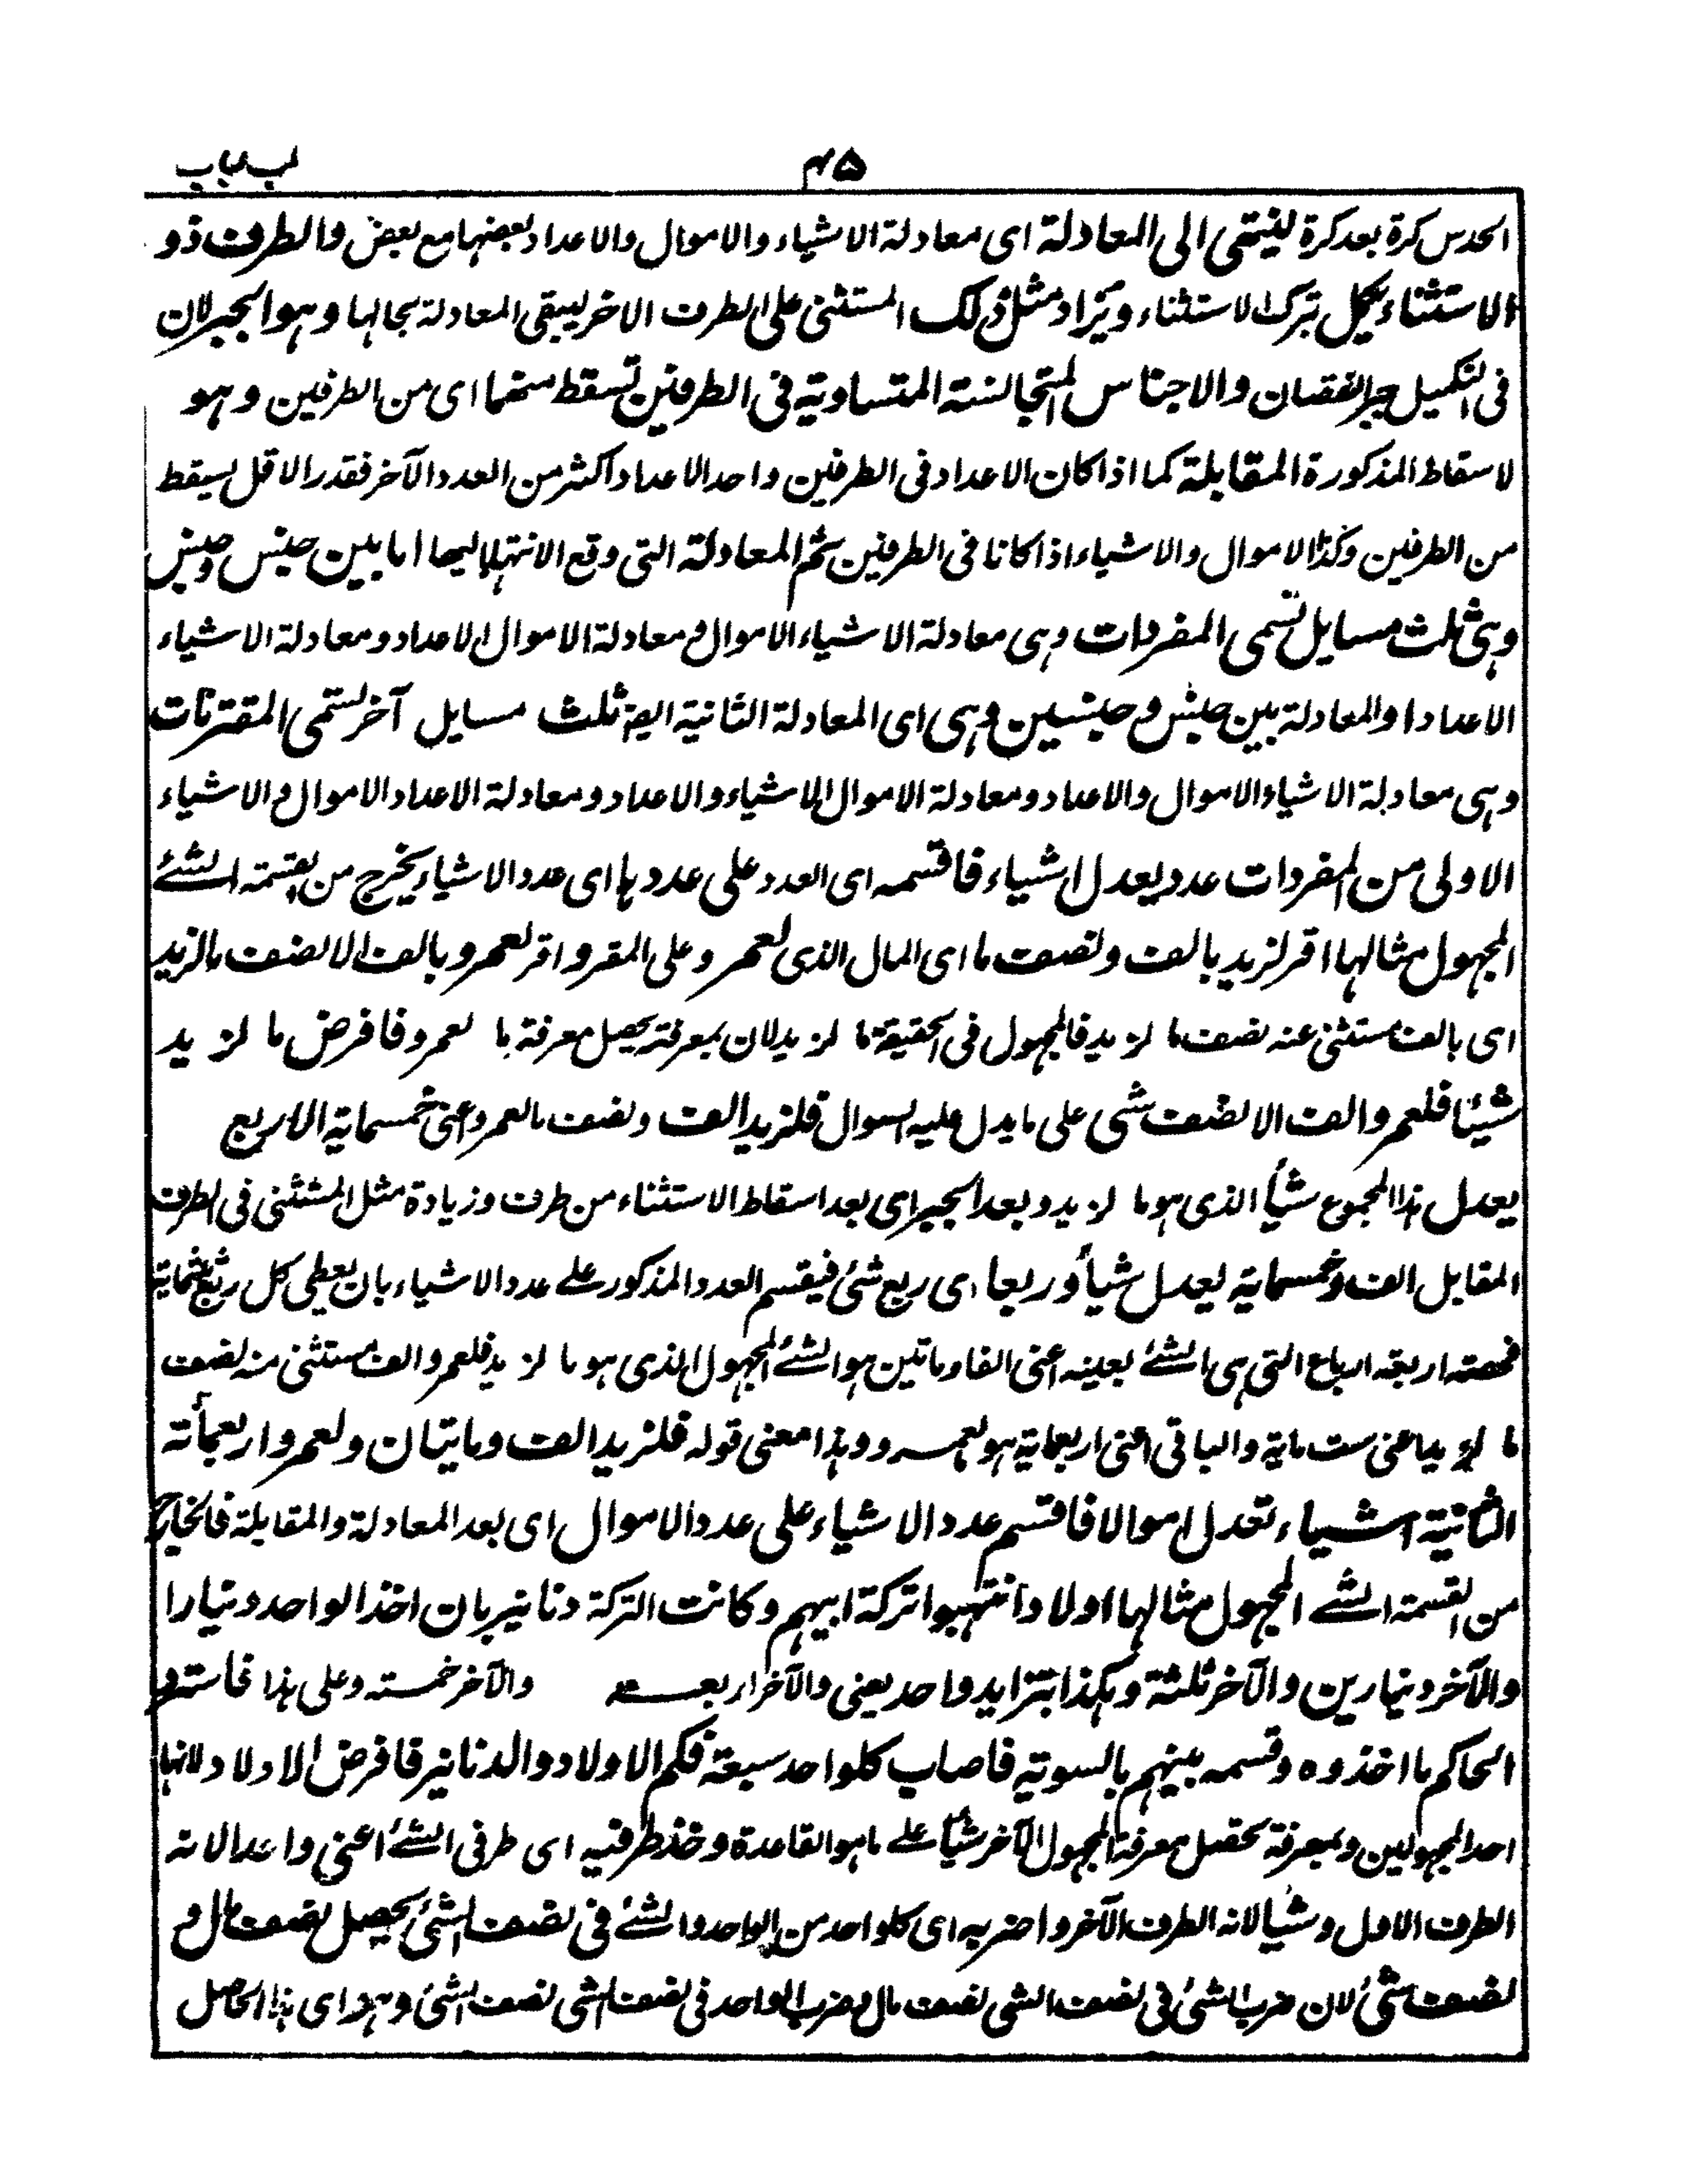 ۴۵
لب لباب
الحدس كرة بعد كرة لينتهى الى المعادلة اى معادلة الاشياء والاموال والاعداد بعضها مع بعض والطرف ذو
الاستثناء يكمل بترك الاستثناء ويزاد مثل ذلك المستثنى على الطرف الاخر ليبقى المعادلة بحالها وهو الجبر لان
فى التكميل جبر النقصان والاجناس المتجانسة المتساوية فى الطرفين تسقط منهما اى من الطرفين وهو
لاسقاط المذكورة المقابلة كما اذا كان الاعداد فى الطرفين واحد الاعداد اكثر من العدد الآخر فقدر الاقل يسقط
من الطرفين وكذا الاموال والاشياء اذا كانا فى الطرفين ثم المعادلة التى وقع الانتهاء اليها اما بين جنس وجنس
وهى ثلث مسايل تسمى المفردات وهى معادلة الاشياء الاموال و معادلة الاموال الاعداد و معادلة الاشياء
الاعداد او المعادلة بين جنس و جنسين وهى اى المعادلة الثانية ايضا ثلث مسايل آخر تسمى المقترنات
وهى معادلة الاشياء الاموال والاعداد و معادلة الاموال الاشياء والاعداد و معادلة الاعداد الاموال و الاشياء
الاولى من المفردات عدد يعدل اشياء فاقسمه اى العدد على عددها اى عدد الاشياء يخرج من القسمة الشئ
المجهول مثالها اقر لزيد بالف ونصف ما اى المال الذى لعمرو على المقر و اقر لعمرو بالف الا نصف ما لزيد
اى بالف مستثنى عنه نصف ما لزيد فالمجهول فى الحقيقة ما لزيد لان بمعرفته يحصل معرفة ما لعمرو فافرض ما لزيد
شيئا فلعمرو الف الا نصف شى على ما يدل عليه السوال فلزيد الف ونصف ما لعمرو اعنى خمسماية الا ربع
يعدل هذا المجموع شيأ الذى هو ما لزيد و بعد الجبر اى بعد اسقاط الاستثناء من طرف وزيادة مثل المستثنى فى الطرف
المقابل الف وخمسماية يعدل شيأ وربعا اى ربع شئ فيقسم العدد المذكور على عدد الاشياء بان يعطى كل ربع
فحصته اربعة ارباع التى هى الشئ بعينه اعنى الفا ومأتين هو الشئ المجهول الذى هو ما لزيد فلعمرو الف مستثنى منه نصف
ما لزيد اعنى ست ماية والباقى اعنى اربعماية هو لعمرو وهذا معنى قوله فلزيد الف ومايتان ولعمرو اربعمأته
الثانية اشياء تعدل اموالا فاقسم عدد الاشياء على عدد الاموال اى بعد المعادلة والمقابلة فالخارج
من القسمة الشئ المجهول مثالها اولاد انتهبوا تركة ابيهم و كانت التركة دنانير بان اخذ الواحد دنيارا
والآخر دنيارين والآخر ثلثة وهكذا بتزايد واحد يعنى والآخر اربعة والآخر خمسته وعلى هذا فاسترد
الحاكم ما اخذوه وقسمه بينهم بالسوية فاصاب كلواحد سبعة فكم الاولاد والدنانير فافرض الاولاد لانها
احد المجهولين وبمعرفة تحصل معرفة المجهول الآخر شيأ على ما هو القاعدة وخذ طرفيه اى طرفى الشئ اعنى واعدا لانه
الطرف الاول و شيا لانه الطرف الآخر واضربه اى كلواحد من الواحد والشئ فى نصف الشئ يحصل نصف مال و
نصف شئ لان ضرب الشئ فى نصف الشى نصف مال وضرب الواحد فى نصف الشى نصف الشئ وهو اى هذا الحاصل